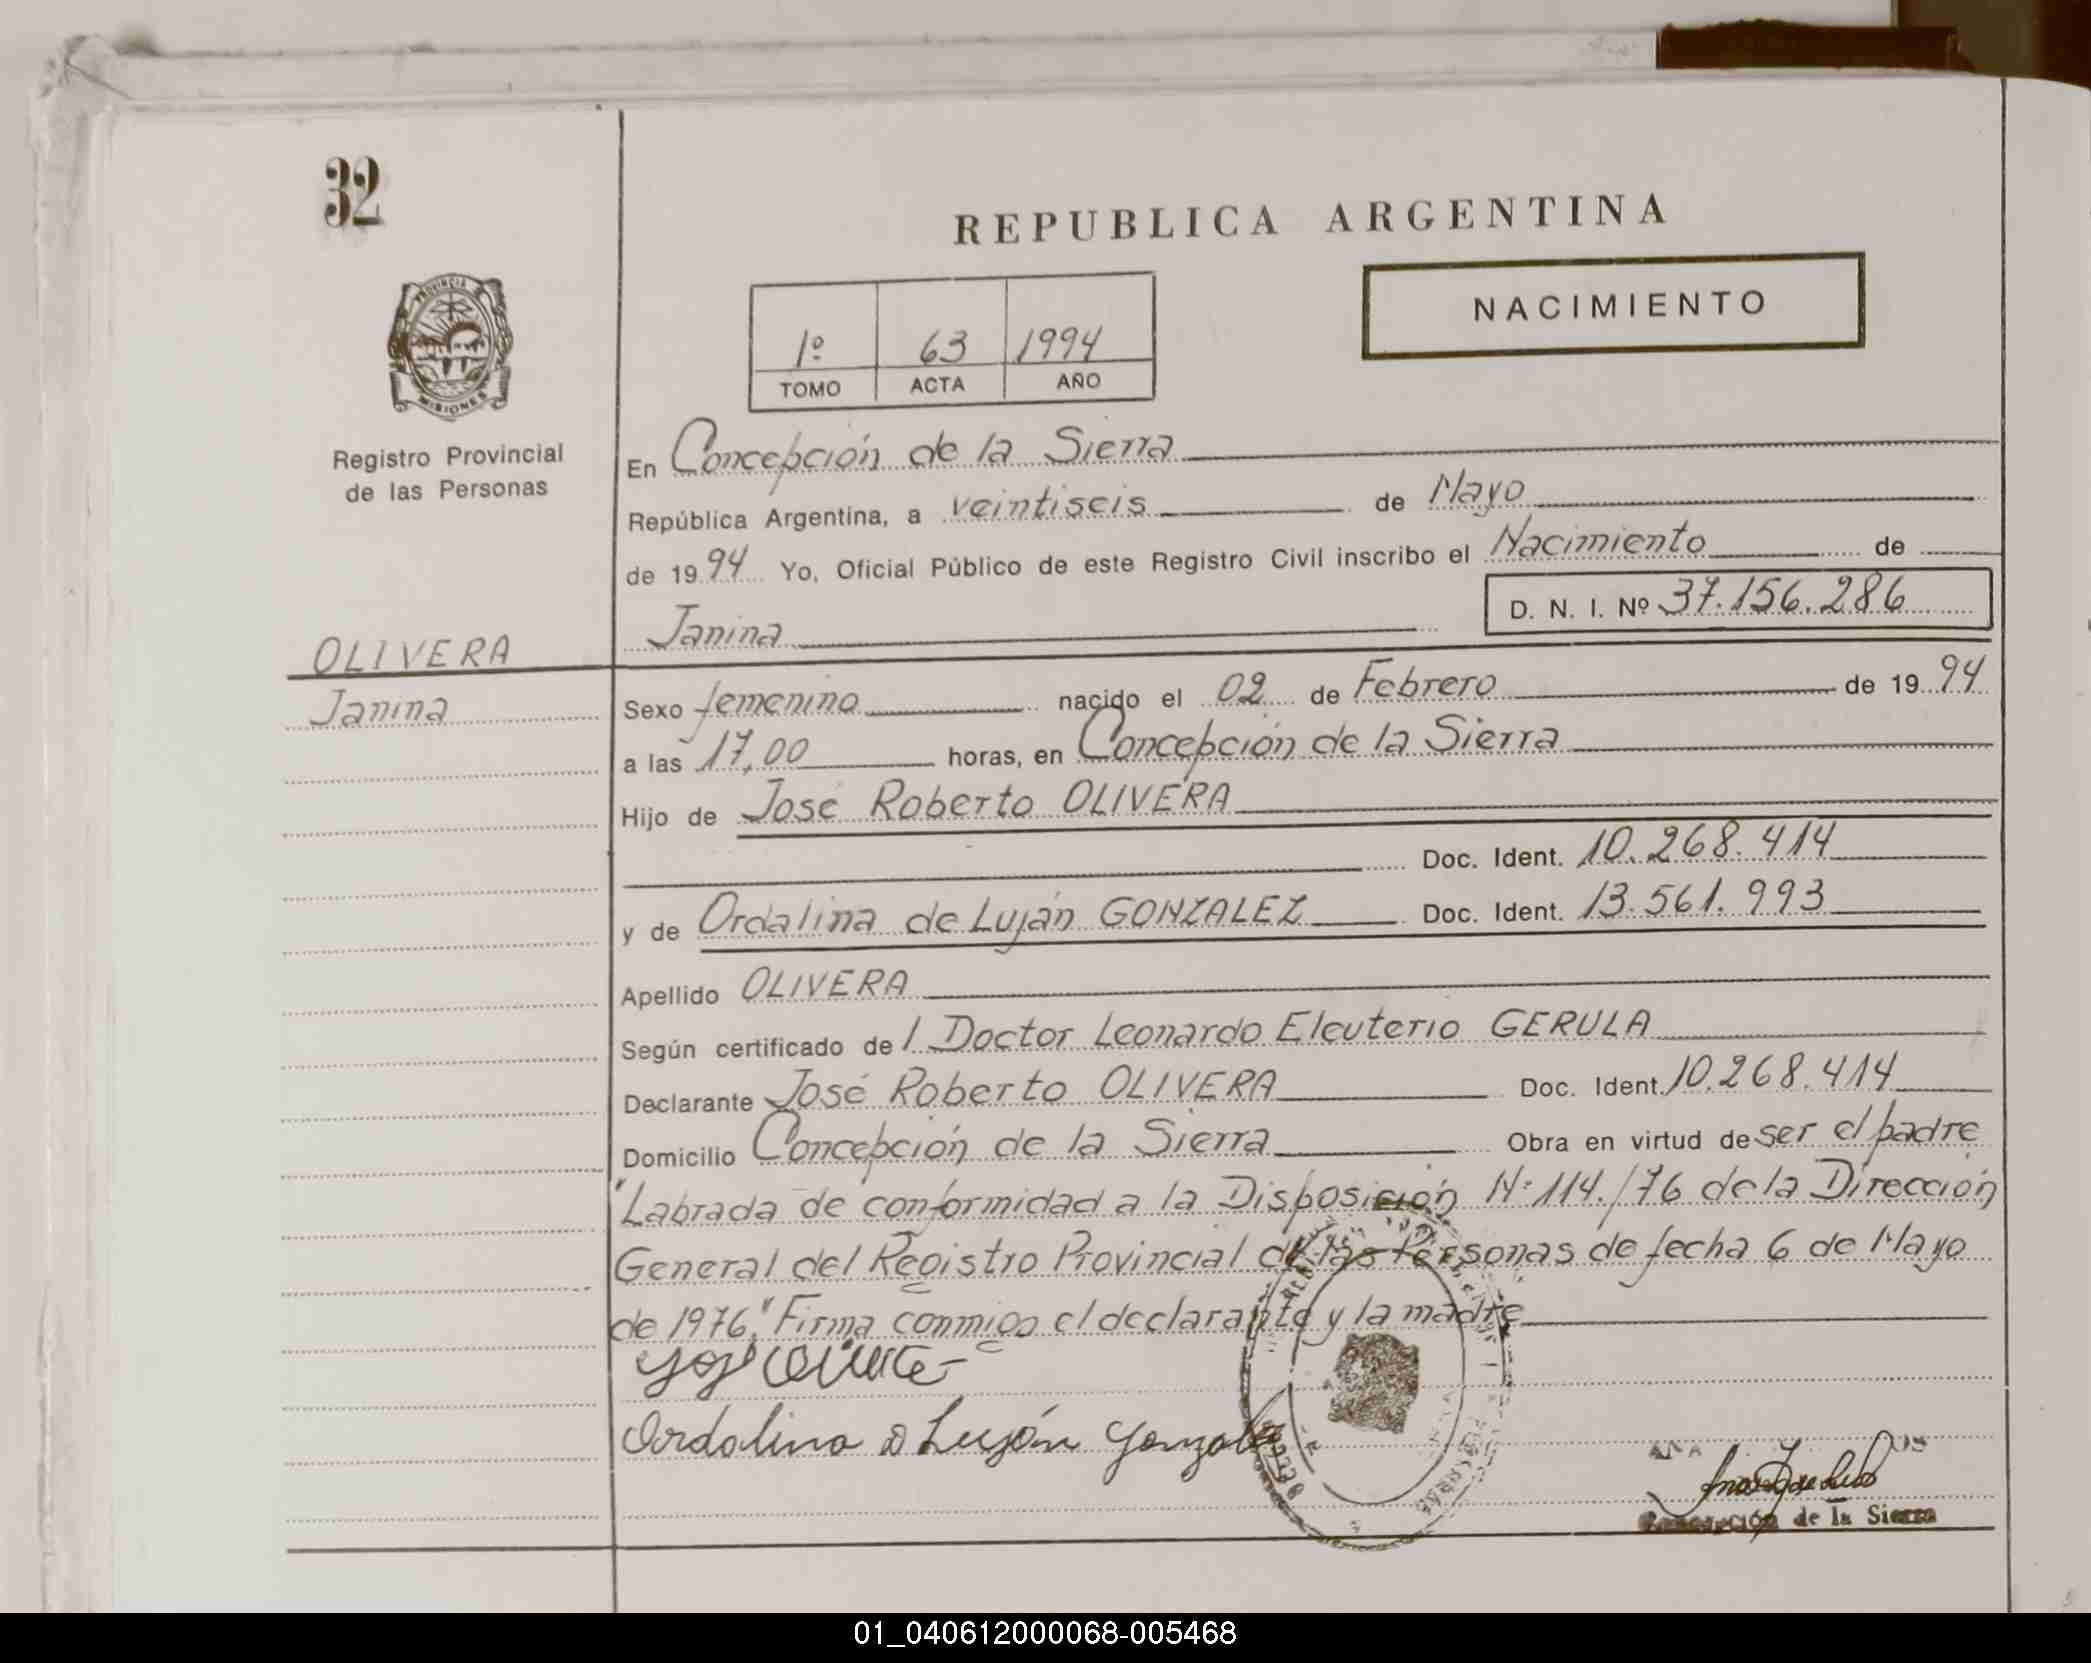 32
REPUBLICA ARGENTINA
NACIMIENTO
1º 63 1994
TOMO ACTA AÑO
PROVINCIA
MISIONES
Registro Provincial
de las Personas
En Concepción de la Sierra
República Argentina, a veintiseis de Mayo
de 1994 Yo, Oficial Público de este Registro Civil inscribo el Nacimiento de
Janina D. N. I. Nº 37.156.286
OLIVERA
Janina
Sexo femenino nacido el 02 de Febrero de 1994
a las 17,00 horas, en Concepción de la Sierra
Hijo de José Roberto OLIVERA
Doc. Ident. 10.268.414
y de Ordalina de Luján GONZALEZ Doc. Ident. 13.561.993
Apellido OLIVERA
Según certificado del Doctor Leonardo Eleuterio GERULA
Declarante José Roberto OLIVERA Doc. Ident. 10.268.414
Domicilio Concepción de la Sierra Obra en virtud de ser el padre
"Labrada de conformidad a la Disposición Nº 114./76 de la Dirección
General del Registro Provincial de las Personas de fecha 6 de Mayo
de 1976." Firma conmigo el declarante y la madre
Ordalina D Luján Gonzalez
ANA
Concepción de la Sierra
01_040612000068-005468